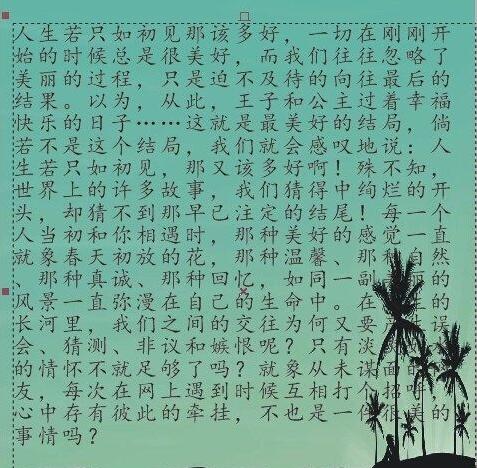 人生若只如初见那该多好，一切在刚刚开
始的时候总是很美好，而我们往往忽略了
美丽的过程，只是迫不及待的向往最后的
结果。以为，从此，王子和公主过着幸福
快乐的日子……这就是最美好的结局，倘
若不是这个结局，我们就会感叹地说：人
生若只如初见，那又该多好啊！殊不知，
世界上的许多故事，我们猜得中绚烂的开
头，却猜不到那早已注定的结尾！每一个
人当初和你相遇时，那种美好的感觉一直
就象春天初放的花，那种温馨、那种自然
、那种真诚、那种回忆，如同一副 丽的
风景一直弥漫在自己的生命中。在 生的
长河里，我们之间的交往为何又要 误
会、猜测、非议和嫉恨呢？只有淡
的情怀不就足够了吗？就象从未谋面的
友，每次在网上遇到时候互相打个招
心中存有彼此的牵挂，不也是一件很美的
事情吗？